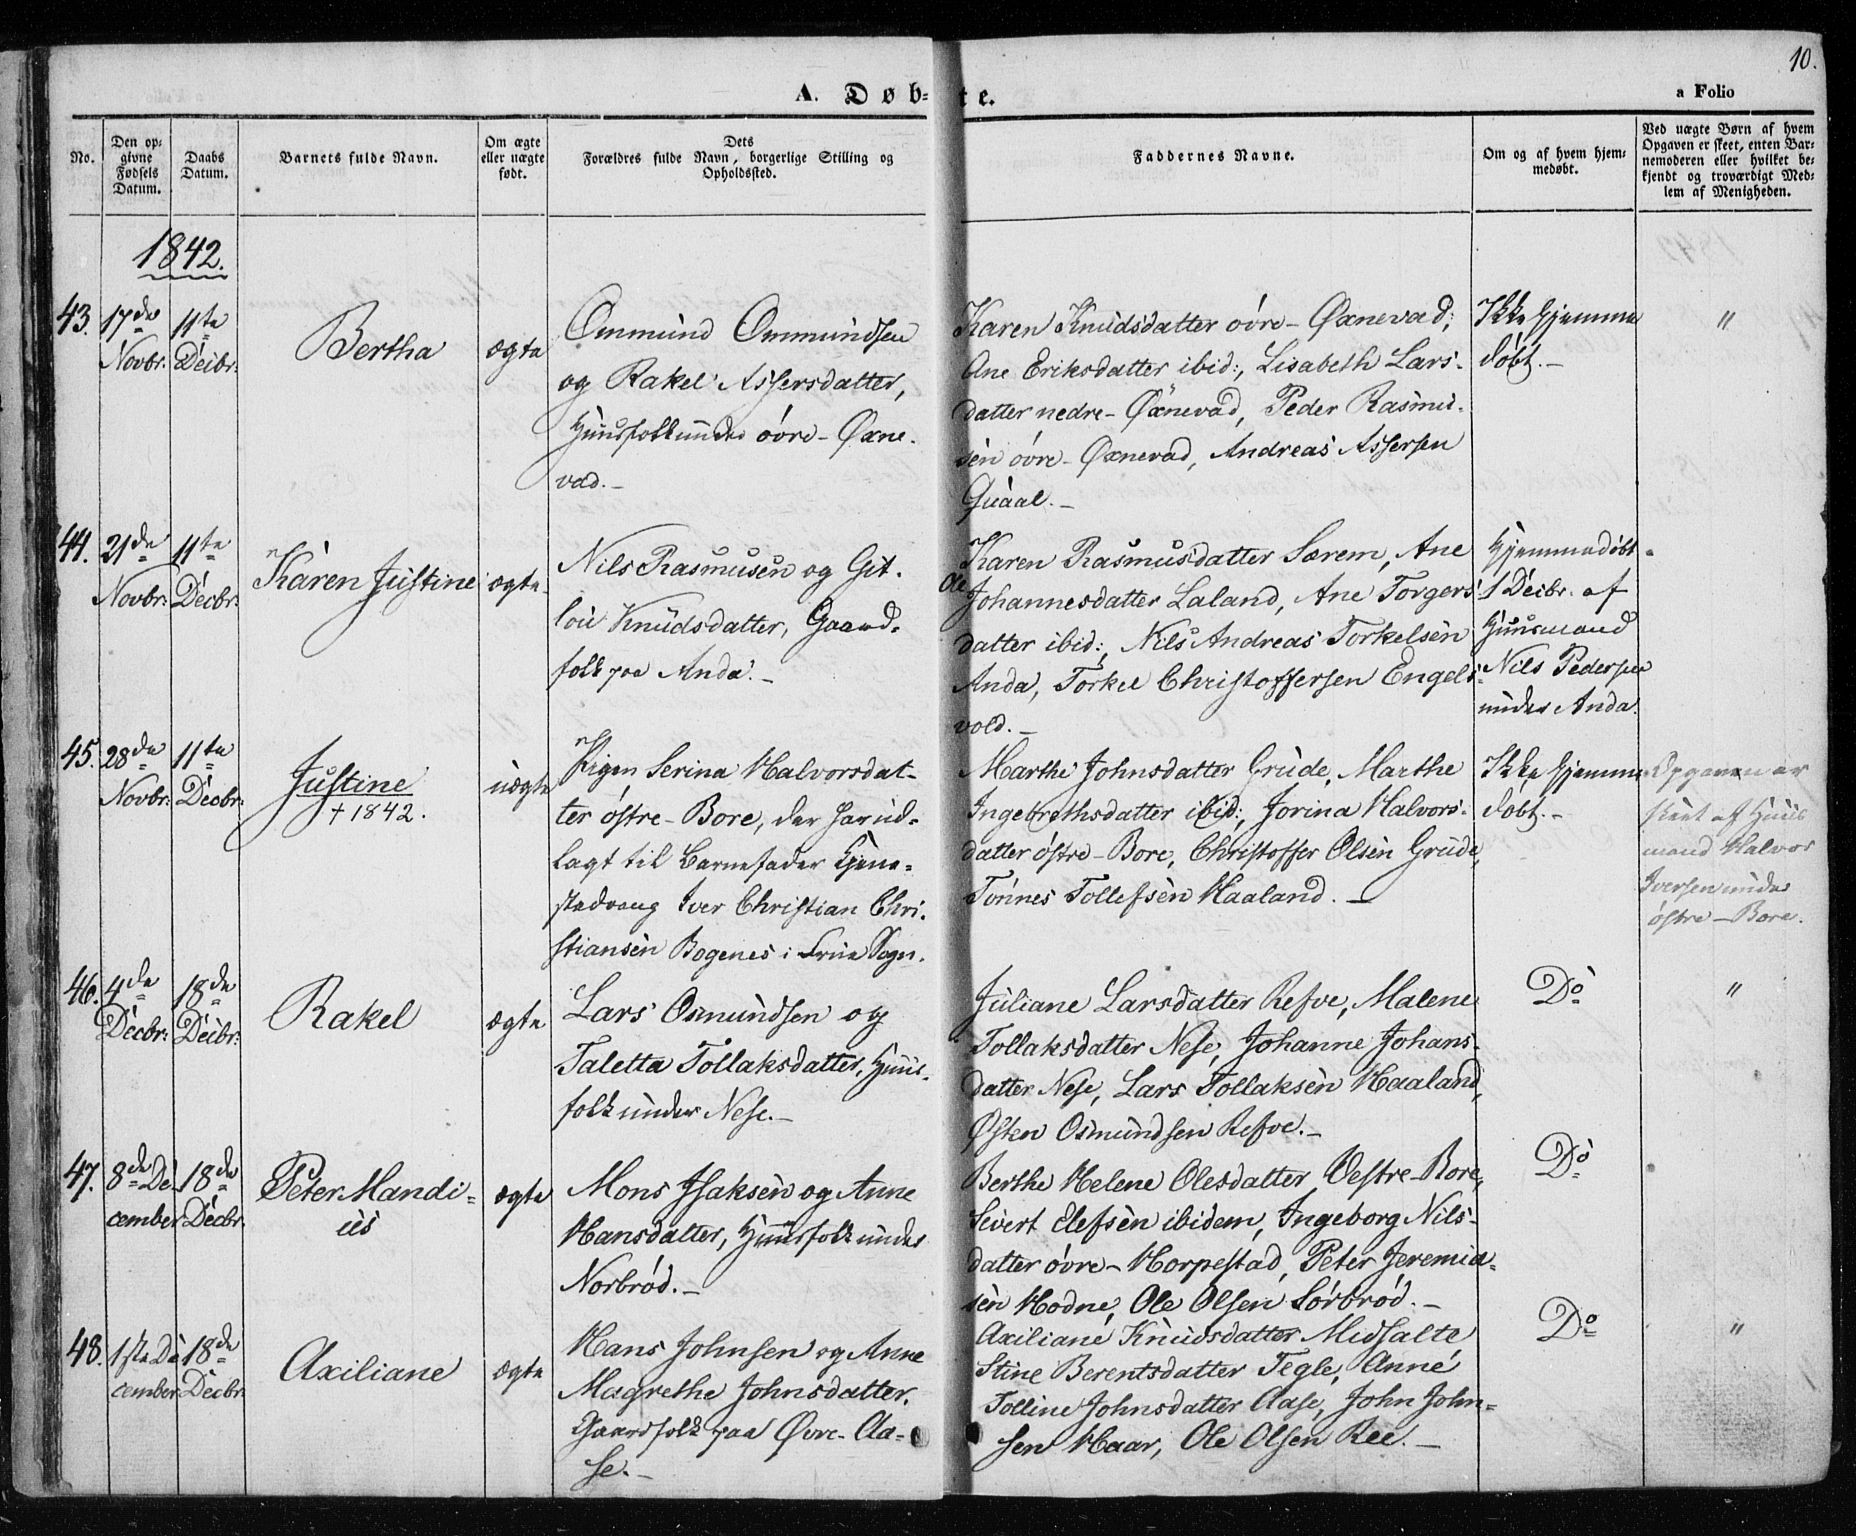 10.
A. Døb-te.
a Folio
No.
Den op-
givne
Fødsels
Datum.
Daabs
Datum.
Barnets fulde Navn.
Om ægte
eller uægte
født.
Dets
Forældres fulde Navn, borgerlige Stilling og
Opholdssted.
Faddernes Navne.
Om og af hvem hjem-
medøbt.
Ved uægte Børn af hvem
Opgaven er skeet, enten Bar-
nemoderen eller hvilket be-
kjendt og troværdigt Med-
lem af Menigheden.
1842.
43.
17de
Novbr:
11te
Decbr:
Bertha
ægte
Ommund Ommundsen
og Rakel Assersdatter,
Huusfolk under øvre-Øxne-
vad.-
Karen Knudsdatter øvre-Øxnevad,
Ane Eriksdatter ibid:, Lisabeth Lars-
datter nedre-Øxnevad, Peder Rasmu-
sen øvre-Øxnevad, Andreas Assersen
Quaal.-
Ikke hjemme
døbt.-
"
44.
21de
Novbr:
11te
Decbr:
Karen Justine
ægte
Nils Rasmusen og Git-
lou Knudsdatter, Gaard-
folk paa Anda.-
Karen Rasmusdatter Særem, Ane
Johannesdatter Laland, Ane Torgers-
datter ibid:, Nils Andreas Torkelsen
Anda, Torkel Christoffersen Engels-
vold.-
Hjemmedøbt
1 Decbr. af
Huusmand
Nils Pedersen
under Anda.
45.
28de
Novbr:
11te
Decbr:
Justine
† 1842.
uægte
Pigen Serina Halvorsdat-
ter østre-Bore, der har ud-
lagt til Barnefader Tjene-
stedreng Iver Christian Chri-
stiansen Bogenes i Frue Sogn.
Marthe Johnsdatter Grude, Marthe
Ingebrethsdatter ibid:, Jorina Halvors-
datter østre-Bore, Christoffer Olsen Grude,
Tønnes Tollefsen Haaland.-
Ikke hjemme
døbt.-
Opgaven er
skeet af Huus
mand Halvor
Iversen under
østre-Bore.
46.
4de
Decbr:
18de
Decbr:
Rakel
ægte
Lars Osmundsen og
Taletta Tollaksdatter, Huus-
folk under Nese.-
Juliane Larsdatter Refve, Malene
Tollaksdatter Nese, Johanne Johans-
datter Nese, Lars Tollaksen Haaland,
Østen Osmundsen Refve.-
Do
"
47.
8de De-
cember
18de
Decbr:
Peter Mandi-
us
ægte
Mons Isaksen og Anne
Hansdatter, Huusfolk under
Norbrød.-
Berthe Helene Olesdatter Vestre-Bore,
Sivert Elefsen ibidem, Ingeborg Nils-
datter øvre-Horpestad, Peter Jeremia-
sen Hodne, Ole Olsen Sørbrød.-
Do
48.
1ste De
cember
18de
Decbr:
Axiliane
ægte
Hans Johnsen og Anne
Magrethe Johnsdatter,
Gaardfolk paa Øvre-Aa-
se.-
Axiliane Knudsdatter Midsalte
Stine Berentsdatter Tegle, Anne
Tolline Johnsdatter Aase, John John-
sen Haar, Ole Olsen Ree.-
Do
"